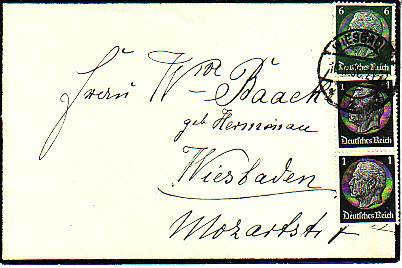 6 6
Deutsches Reich
WIESBADEN
1 1
Deutsches Reich
1 1
Deutsches Reich
Frau Wwe Baack
geb Hermanau
Wiesbaden
Mozartstr